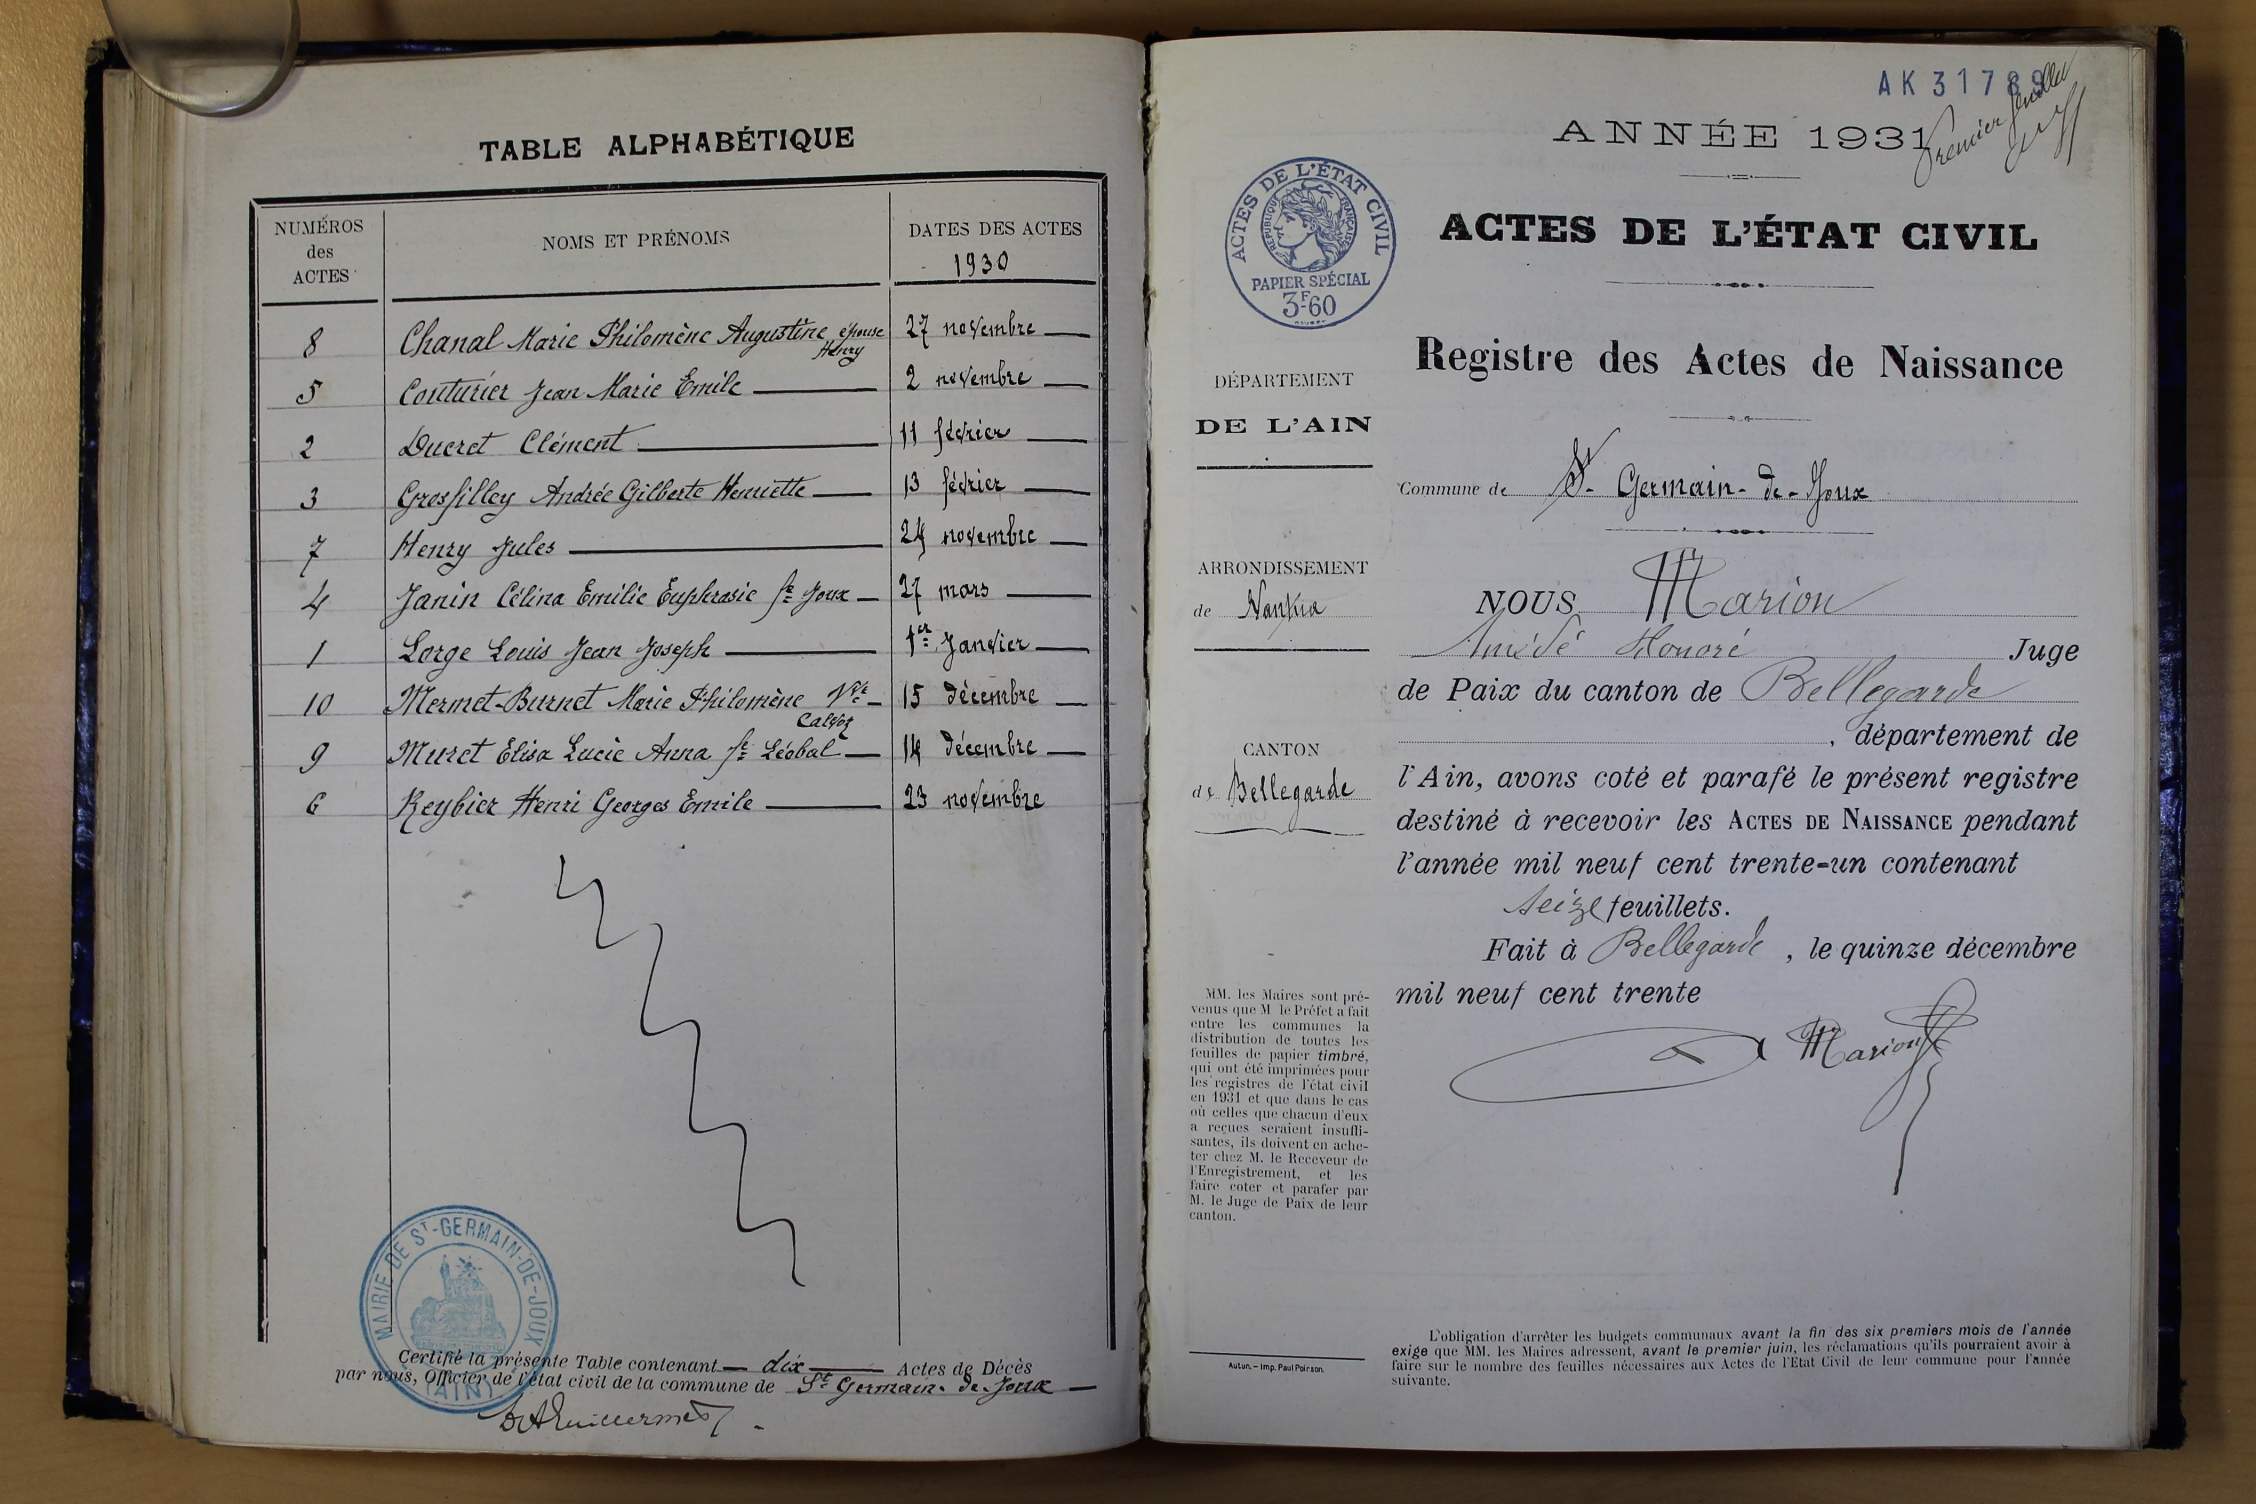 TABLE ALPHABÉTIQUE
NUMÉROS
des
ACTES
NOMS ET PRÉNOMS
DATES DES ACTES
1930
8 Chanal Marie Philomène Augustine épouse Henry 27 novembre
5 Couturier Jean Marie Emile 2 novembre
2 Ducret Clément 11 février
3 Grosfilley Andrée Gilberte Henriette 13 février
7 Henry Jules 24 novembre
4 Janin Célina Emilie Euphrasie fe Joux 27 mars
1 Lorge Louis Jean Joseph 1er Janvier
10 Mermet-Burnet Marie Philomène Vve 15 décembre
9 Muret Elisa Lucie Anna fe Léobal 14 décembre
6 Reybier Henri Georges Emile 23 novembre
MAIRIE DE ST-GERMAIN-DE-JOUX
(AIN)
Certifié la présente Table contenant dix Actes de Décès
par nous, Officier de l'état civil de la commune de St Germain-de-Joux
AK 31789
Premier feuillet
ANNÉE 1931
ACTES DE L'ÉTAT CIVIL
RÉPUBLIQUE FRANÇAISE
PAPIER SPÉCIAL
3F.60
ACTES DE L'ÉTAT CIVIL
Registre des Actes de Naissance
DÉPARTEMENT
DE L'AIN
Commune de St Germain-de-Joux
ARRONDISSEMENT
de Nantua
NOUS Marion
Amédé Honoré Juge
de Paix du canton de Bellegarde
, département de
CANTON
de Bellegarde
l'Ain, avons coté et parafé le présent registre
destiné à recevoir les ACTES DE NAISSANCE pendant
l'année mil neuf cent trente-un contenant
seize feuillets.
Fait à Bellegarde , le quinze décembre
mil neuf cent trente
Marion
MM. les Maires sont pré-
venus que M le Préfet a fait
entre les communes la
distribution de toutes les
feuilles de papier timbré,
qui ont été imprimées pour
les registres de l'état civil
en 1931 et que dans le cas
où celles que chacun d'eux
a reçues seraient insuffi-
santes, ils doivent en ache-
ter chez M. le Receveur de
l'Enregistrement, et les
faire coter et parafer par
M. le Juge de Paix de leur
canton.
Autun. – Imp. Paul Poirson.
L'obligation d'arrêter les budgets communaux avant la fin des six premiers mois de l'année
exige que MM. les Maires adressent, avant le premier juin, les réclamations qu'ils pourraient avoir à
faire sur le nombre des feuilles nécessaires aux Actes de l'Etat Civil de leur commune pour l'année
suivante.